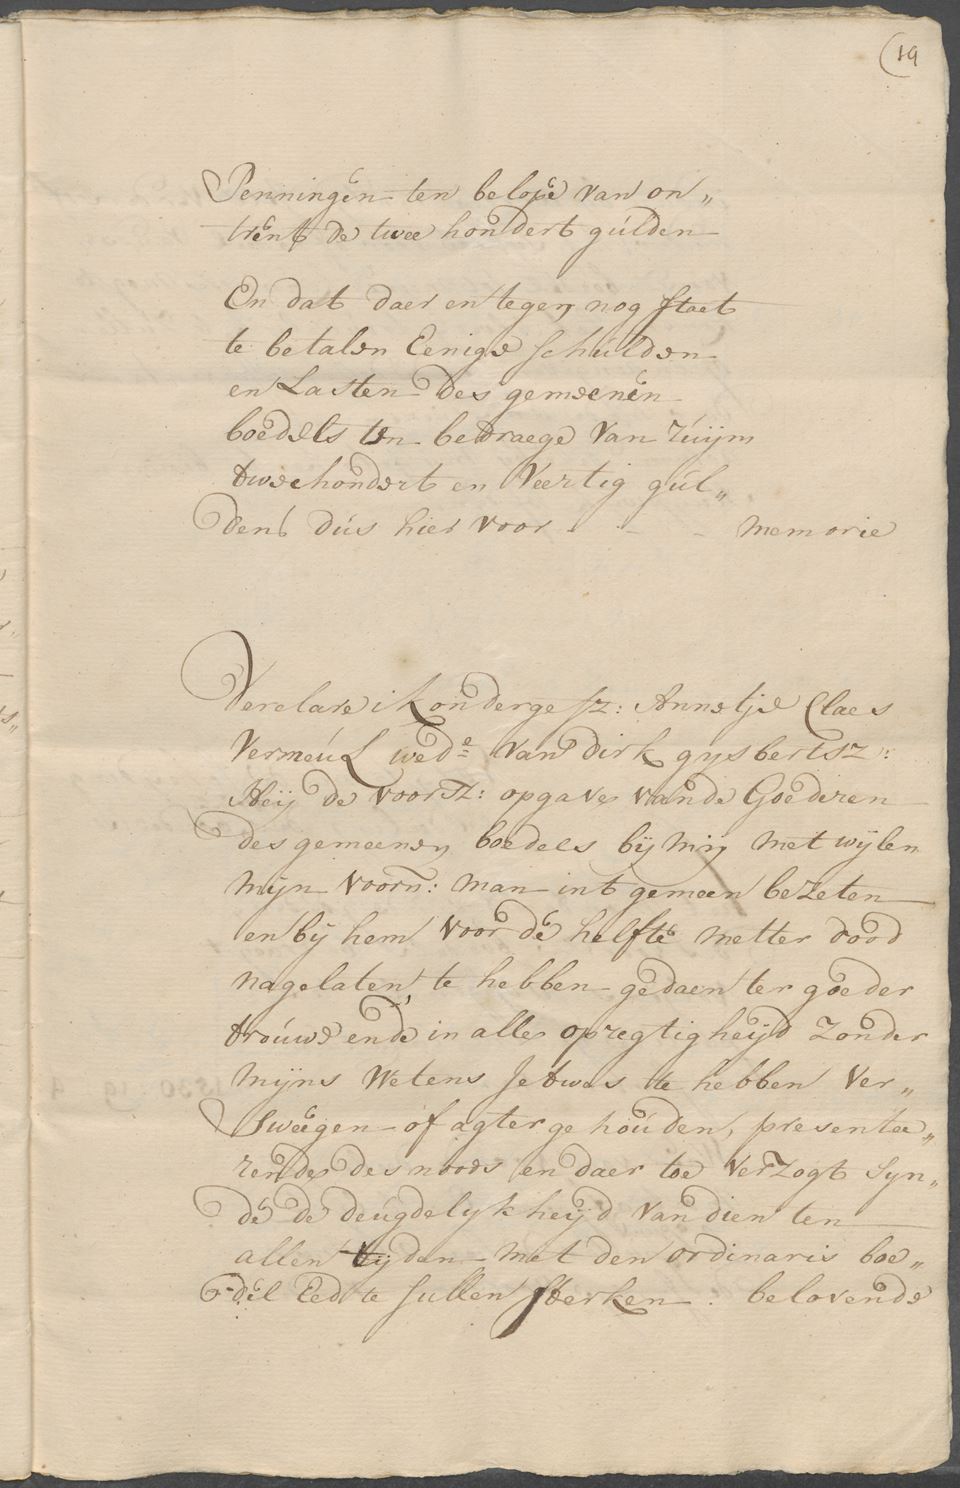 (19
Penningen ten belope van on„
trent de twee hondert gulden
En dat daer en tegen nog staet
te betalen Eenige schulden
en Lasten des gemeenen
boedels ten bedraege van ruijm
tweehondert en veertig gul„
dens dus hier voor . - - memorie
Verclare ik ondergesz: Annetje Claes
Vermeul wede van dirk gysbertsz:
Heij de voorsz: opgave vande Goederen
des gemeenen boedels bij mij met wijlen
mijn voorn: man int gemeen bezeten
en bij hem voor de helfte metter dood
nagelaten te hebben gedaen ter goeder
trouwe ende in alle opregtigheijd zonder
mijns Wetens Jetwes te hebben ver„
sweegen of agtergehouden, presentee„
rende des noods en daer toe verzogt syn„
de de deugdelykheijd van dien ten
allen tijden met den ordinaris boe„
del Eed te sullen sterken. belovende